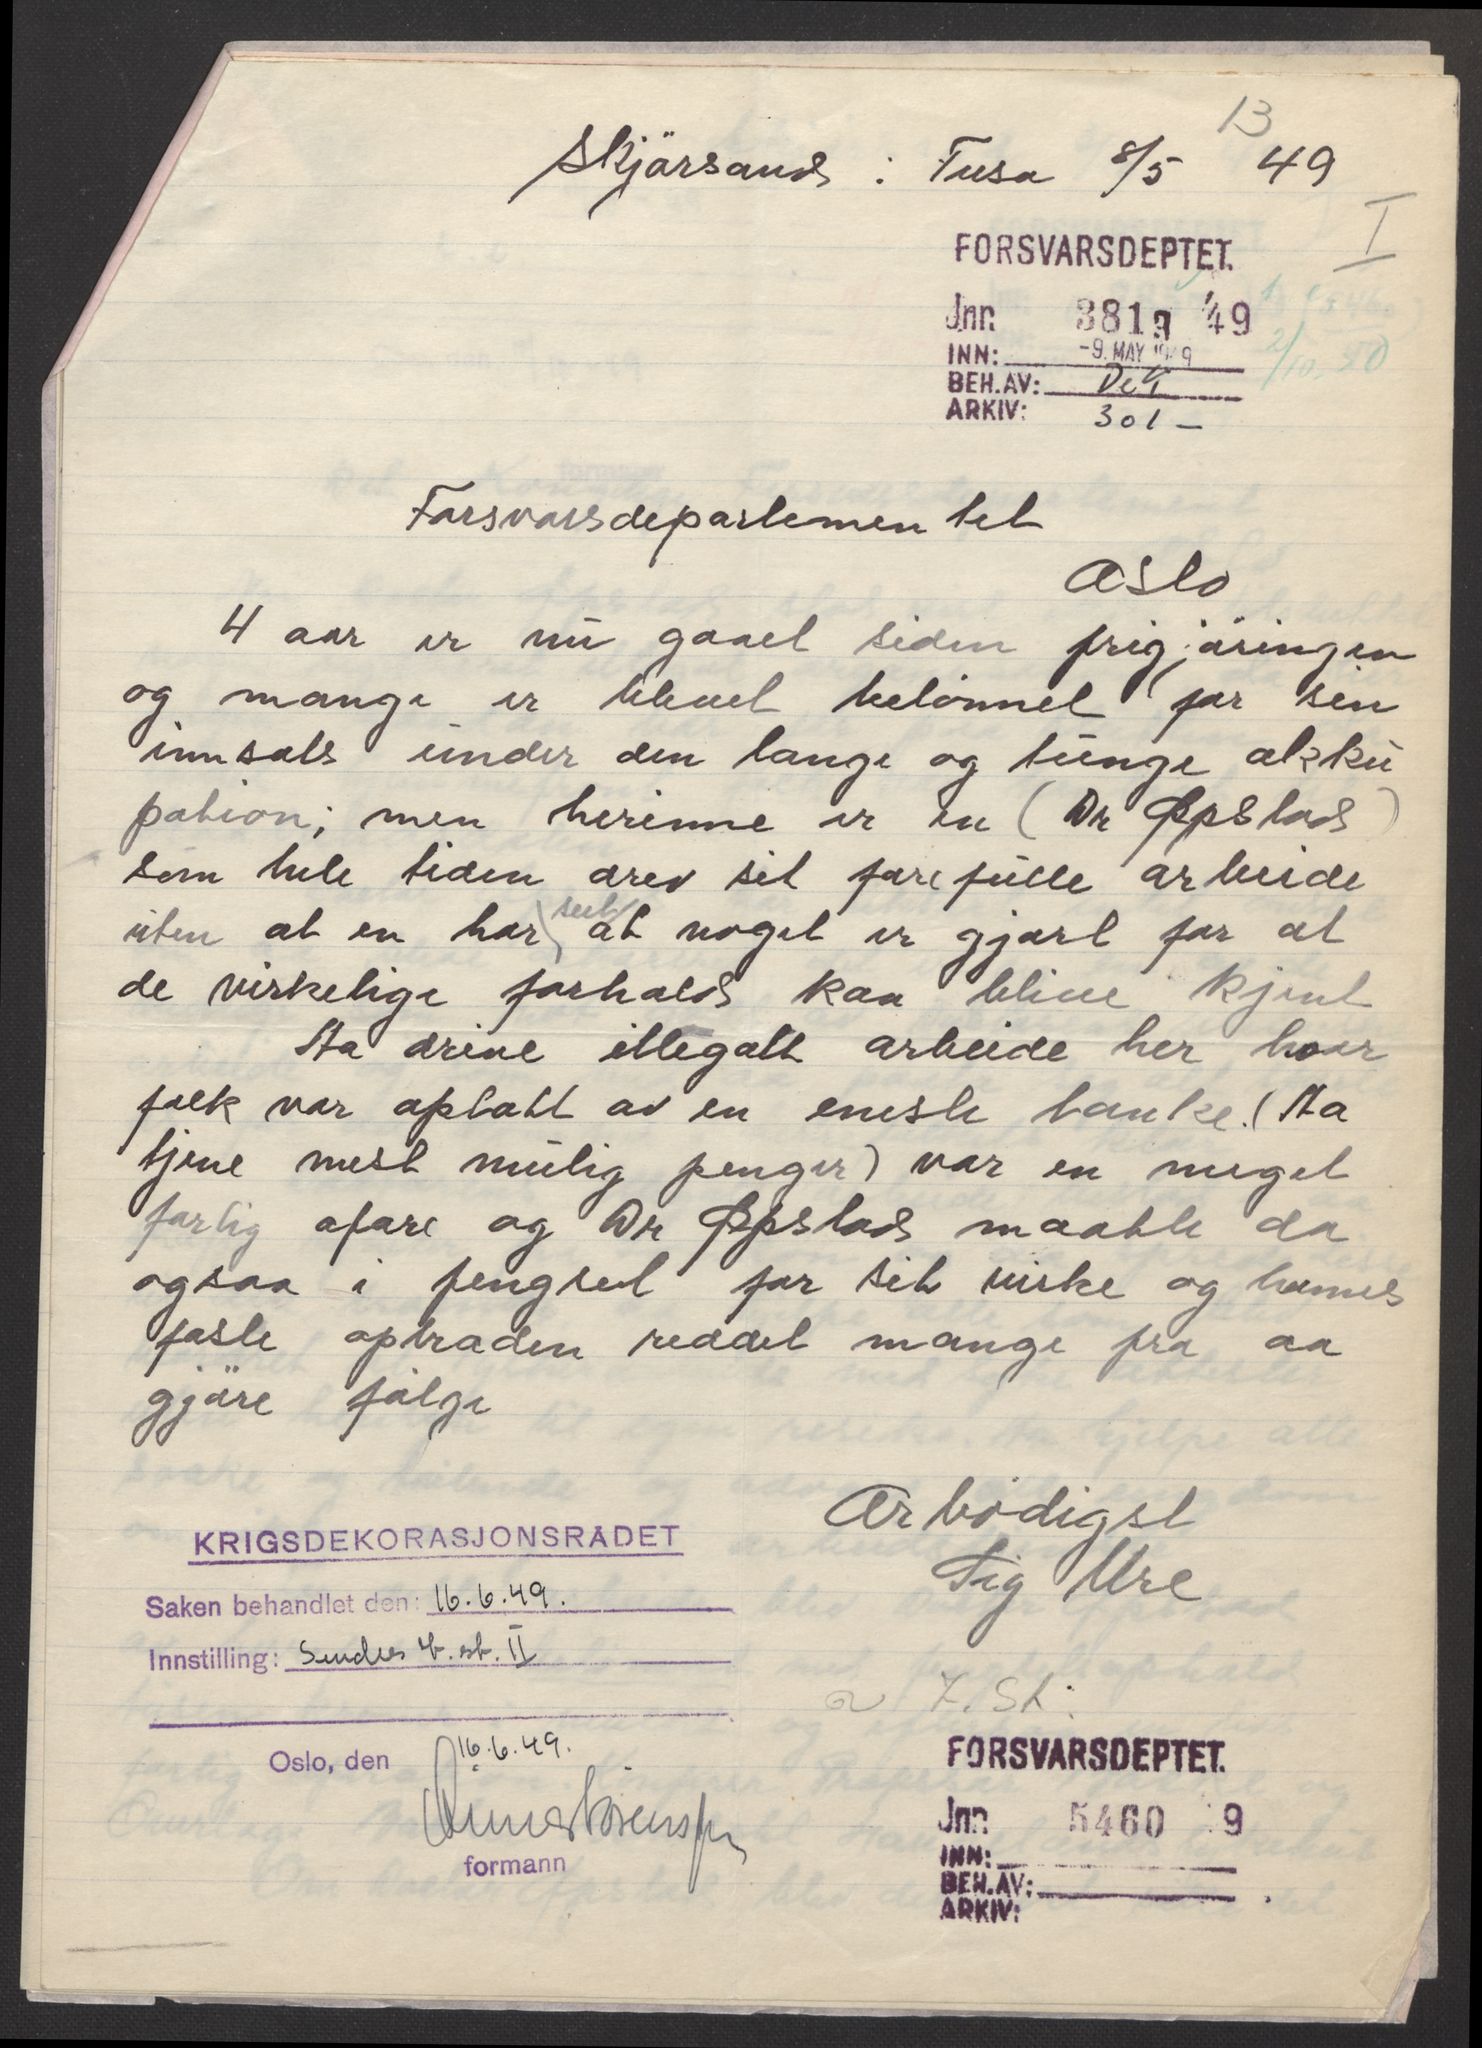 13
Skjärsand : Fusa 8/5 49
I
FORSVARSDEPTET.
Jnr. 3819 '49
INN: -9. MAY 1949
BEH.AV: Dek
ARKIV: 301 -
2/10. 50
Forsvarsdepartementet
Oslo
4 aar er nu gaaet siden frigjöringen
og mange er blevet belönnet for sin
innsats under den lange og tunge okku
pation; men herinne er en (Dr Øpstad)
som hele tiden drev sit farefulle arbeide
uten at en har seet at noget er gjort for at
de virkelige forhold kan blive kjent
Aa drive illegalt arbeide her, hvor
folk var optatt av en eneste tanke. (Aa
tjene mest mulig penger) var en meget
farlig afære og Dr Øpstad maatte da
ogsaa i fengsel for sit virke og hannes
faste optræden reddet mange fra aa
gjöre fölge
Arbödigst
Sig Ure
KRIGSDEKORASJONSRÅDET
Saken behandlet den: 16.6.49.
Innstilling: Sendes t. st. II
Oslo, den 16.6.49.
formann
FORSVARSDEPTET.
Jnr. 5460 9
INN:
BEH.AV:
ARKIV: